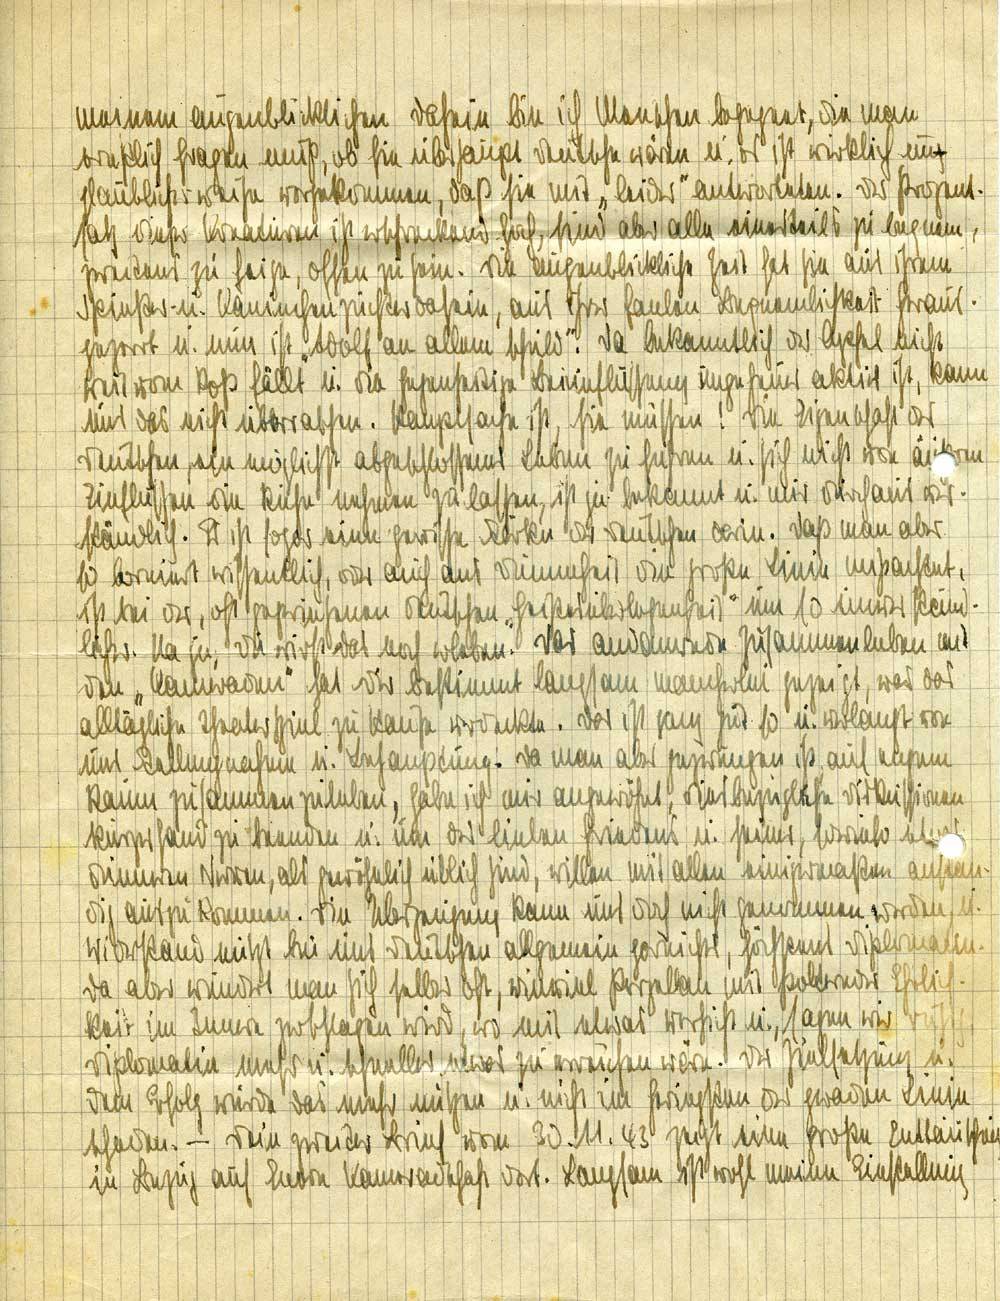 meinem augenblicklichen Dasein bin ich Menschen begegnet, die man
ernstlich fragen muß, ob sie überhaupt Deutsche wären u. es ist wirklich un-
glaublicherweise vorgekommen, daß sie mir „leider“ antworteten. Der Prozent-
satz dieser Kreaturen ist erschreckend hoch, sind aber alle einesteils zu bequem,
zweitens zu feige, offen zu sein. Die augenblickliche Zeit hat sie aus ihrem
Spießer- u. Kaninchenzüchterdasein, aus ihrer faulen Bequemlichkeit heraus-
gezerrt u. nun ist „Adolf an allem schuld“. Da bekanntlich der Apfel nicht
weit vom Roß fällt u. die gegenseitige Beeinflussung ungeheuer aktiv ist, kann
uns das nicht überraschen. Hauptsache ist, sie müssen! Die Eigenschaft der
Deutschen, ein möglichst abgeschlossenes Leben zu führen u. sich nicht von äußeren
Einflüssen die Ruhe nehmen zu lassen, ist ja bekannt u. mir durchaus ver-
ständlich. Es ist sogar eine gewisse Stärke der Deutschen darin. Daß man aber
so borniert wissentlich, oder auch aus Dummheit die große Linie mißachtet,
ist bei der, oft gepriesenen deutschen „Geistesüberlegenheit“ um so unverständ-
licher. Na ja, Du wirst das noch erleben. Das andauernde Zusammenleben mit
den „Kameraden“ hat Dir bestimmt langsam mancherlei gezeigt, was das
alltägliche Theaterspiel zu Hause verdeckte. Das ist ganz gut so u. verlangt von
uns Stellungnahme u. Behauptung. Da man aber gezwungen ist auf engem
Raum zusammenzuleben, habe ich mir angewöhnt, diesbezügliche Diskussionen
kurzerhand zu beenden u. um des lieben Friedens u. meiner, sowieso etwas
dünneren Nerven, als gewöhnlich üblich sind, willen mit allen einigermaßen anstän-
dig auszukommen. Die Überzeugung kann uns doch nicht genommen werden, u.
Widerstand nützt bei uns Deutschen allgemein garnichts, höchstens Diplomatie.
Da aber wundert man sich selber oft, wieviel Porzellan mit polternder Ehrlich-
keit im Innern zerschlagen wird, wo mit etwas Vorsicht u., sagen wir ruhig
Diplomatie mehr u. schneller etwas zu erreichen wäre. Der Zielsetzung u.
dem Erfolg würde das mehr nützen u. nicht im Geringsten der geraden Linie
schaden. — Dein zweiter Brief vom 30.11.43 zeigt eine große Enttäuschung
in Bezug auf Eure Kameradschaft dort. Langsam ist wohl meine Einstellung